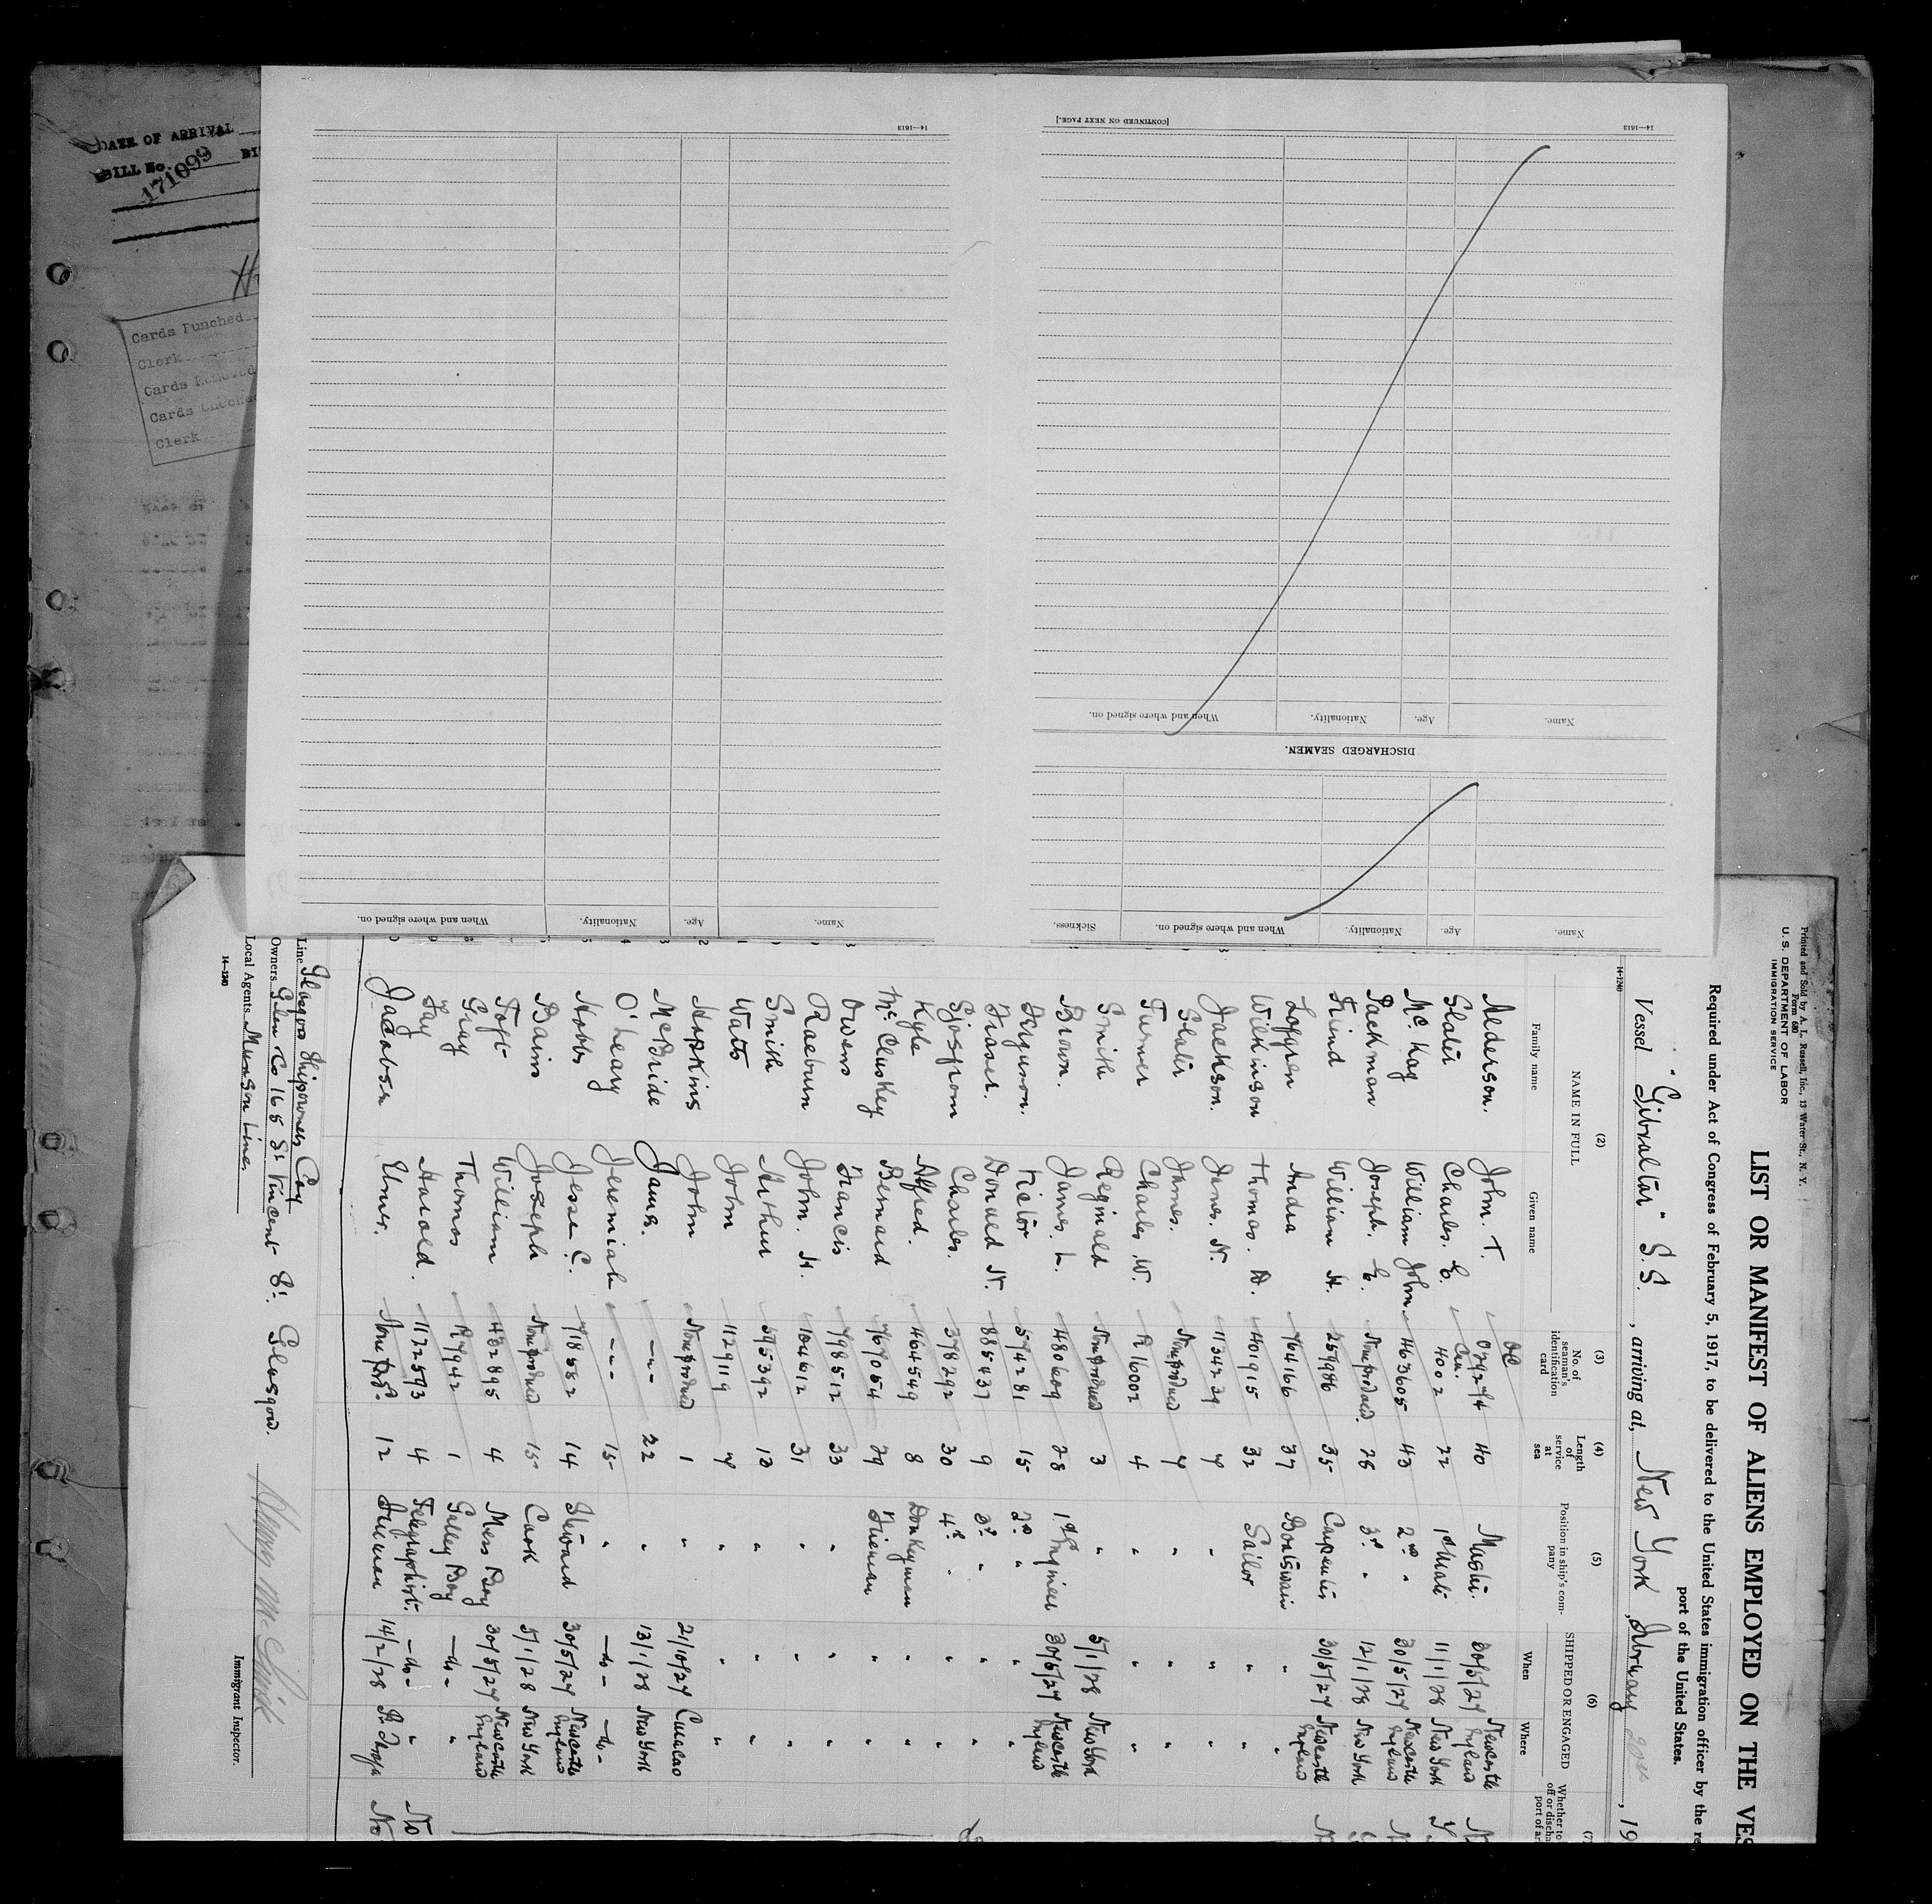 DATE OF ARRIVAL
BILL No.
171099
Cards Punched
Clerk
Cards Removed
Cards Checked
Clerk
14—1613
When and where signed on.
Nationality.
Age.
Name.
[CONTINUED ON NEXT PAGE.]
14—1613
When and where signed on.
Nationality.
Age.
Name.
DISCHARGED SEAMEN.
Sickness.
When and where signed on.
Nationality.
Age.
Name.
Printed and Sold by A. L. Russell, Inc., 13 Water St., N. Y.
Form 680
U. S. DEPARTMENT OF LABOR
IMMIGRATION SERVICE
LIST OR MANIFEST OF ALIENS EMPLOYED ON THE VES
Required under Act of Congress of February 5, 1917, to be delivered to the United States immigration officer by the re
port of the United States.
Vessel "Gibraltar" S.S. , arriving at, New York , February , 19
14—1240
(2) (3) (4) (5) (6) (7
NAME IN FULL
Family name Given name
No. of seaman's identification card
Length of service at sea
Position in ship's company
SHIPPED OR ENGAGED
When Where
Alderson. John. T. 40 Master. 30/5/27 Newcastle England
Slater Charles. E. 4002 22 1st Mate 11/1/28 New York
Mc. Kay William John. 463605 43 2nd " 30/5/27 Newcastle England
Packman Joseph. E. Non produced. 26 3rd " 12/1/28 New York
Friend William H. 259986 35 Carpenter 30/5/27 Newcastle England
Lofgren Andrea 764166 37 Boatswain " "
Wilkinson Thomas. A. 401915 32 Sailor " "
Jackson. James. N. 1134239 7 " " "
Slater James. Non produced 7 " " "
Turner Charles. W. R16002 4 " " "
Smith Reginald Non produced 3 " 5/1/28 New York
Brown. James. L. 480609 28 1st Engineer 30/5/27 Newcastle England
Ferguson. Victor 574281 15 2nd " " "
Fraser. Donald N. 885437 9 3rd " " "
Sjostrom Charles. 378292 30 4th " " "
Kyle Alfred. 464549 8 Donkeyman " "
Mc Cluskey Bernard 767054 29 Fireman " "
Owens Francis 798512 33 " " "
Raeburn John. H. 104612 31 " " "
Smith Arthur 595392 13 " " "
Watts John 1129119 7 " " "
Hopkins John Non produced 1 " 21/10/27 Curacao
McBride James. --- 22 " 13/1/28 New York
O'Leary Jeremiah --- 15 " —do— —do—
Hobbs Jesse C. 718582 14 Steward 30/5/27 Newcastle England
Bains Joseph Non produced 15 Cook 5/1/28 New York
Toft William 432895 4 Mess Boy 30/5/27 Newcastle England
Gray Thomas R77942 1 Galley Boy —do— "
Fay Harold. 1172593 4 Telegraphist. —do— " No
Jacobsen Elmer. 12 Fireman 14/2/28 No
Line Glasgow Shipowners Coy
Owners Glen Co 165 St Vincent St. Glasgow.
Local Agents Munson Line.
14—1240
Immigrant Inspector.